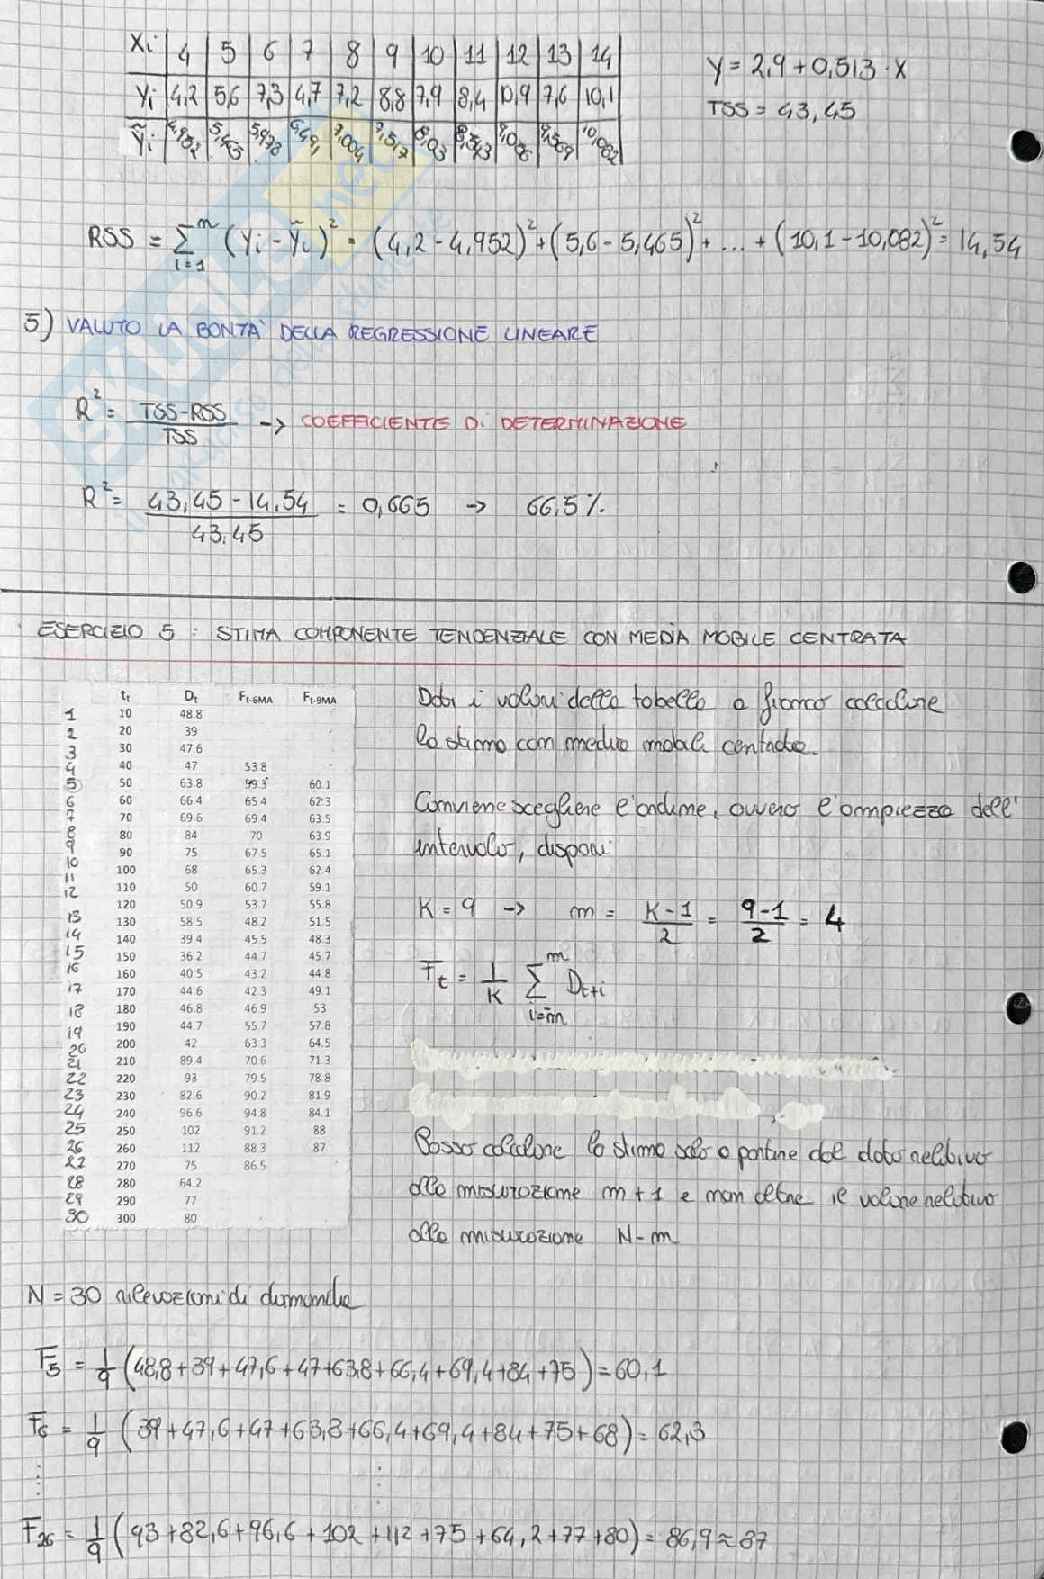 Xi 4 5 6 7 8 9 10 11 12 13 14
Yi 4,2 5,6 7,3 4,7 7,2 8,8 7,9 8,4 10,9 7,6 10,1
Ỹi 4,952 5,465 5,978 6,491 7,004 7,517 8,03 8,543 9,056 9,569 10,082
Y = 2,9 + 0,513 · X
TSS = 43,45
RSS = Σ i=1 m (Yi - Ỹi)² = (4,2 - 4,952)² + (5,6 - 5,465)² + ... + (10,1 - 10,082)² = 14,54
5) VALUTO LA BONTA' DELLA REGRESSIONE LINEARE
R² = TSS-RSS / TSS -> COEFFICIENTE DI DETERMINAZIONE
R² = 43,45 - 14,54 / 43,45 = 0,665 -> 66,5%
ESERCIZIO 5 : STIMA COMPONENTE TENDENZIALE CON MEDIA MOBILE CENTRATA
tt Dt Ft-6MA Ft-9MA
1 10 48.8
2 20 39
3 30 47.6
4 40 47 53.8
5 50 63.8 59.3 60.1
6 60 66.4 65.4 62.3
7 70 69.6 69.4 63.5
8 80 84 70 63.9
9 90 75 67.5 65.1
10 100 68 65.3 62.4
11 110 50 60.7 59.1
12 120 50.9 53.7 55.8
13 130 58.5 48.2 51.5
14 140 39.4 45.5 48.1
15 150 36.2 44.7 45.7
16 160 40.5 43.2 44.8
17 170 44.6 42.3 49.1
18 180 46.8 46.9 53
19 190 44.7 55.7 57.8
20 200 42 63.3 64.5
21 210 89.4 70.6 71.3
22 220 93 79.5 78.8
23 230 82.6 90.2 81.9
24 240 96.6 94.8 84.1
25 250 102 91.2 88
26 260 112 88.3 87
27 270 75 86.5
28 280 64.2
29 290 77
30 300 80
Dati i valori della tabella a fianco calcolare
la stima con media mobile centrata.
Conviene scegliere k ordine, ovvero l'ampiezza dell'
intervallo, dispari:
K = 9 -> m = K-1 / 2 = 9-1 / 2 = 4
Ft = 1/K Σ i=-m m Dt+i
Posso calcolare la stima solo a partire dal dato relativo
alla misurazione m+1 e non oltre il valore relativo
alla misurazione N-m
N = 30 rilevazioni di domanda
F5 = 1/9 (48,8+39+47,6+47+63,8+66,4+69,4+84+75) = 60,1
F6 = 1/9 (39+47,6+47+63,8+66,4+69,4+84+75+68) = 62,3
F26 = 1/9 (93+82,6+96,6+102+112+75+64,2+77+80) = 86,9 ≈ 87